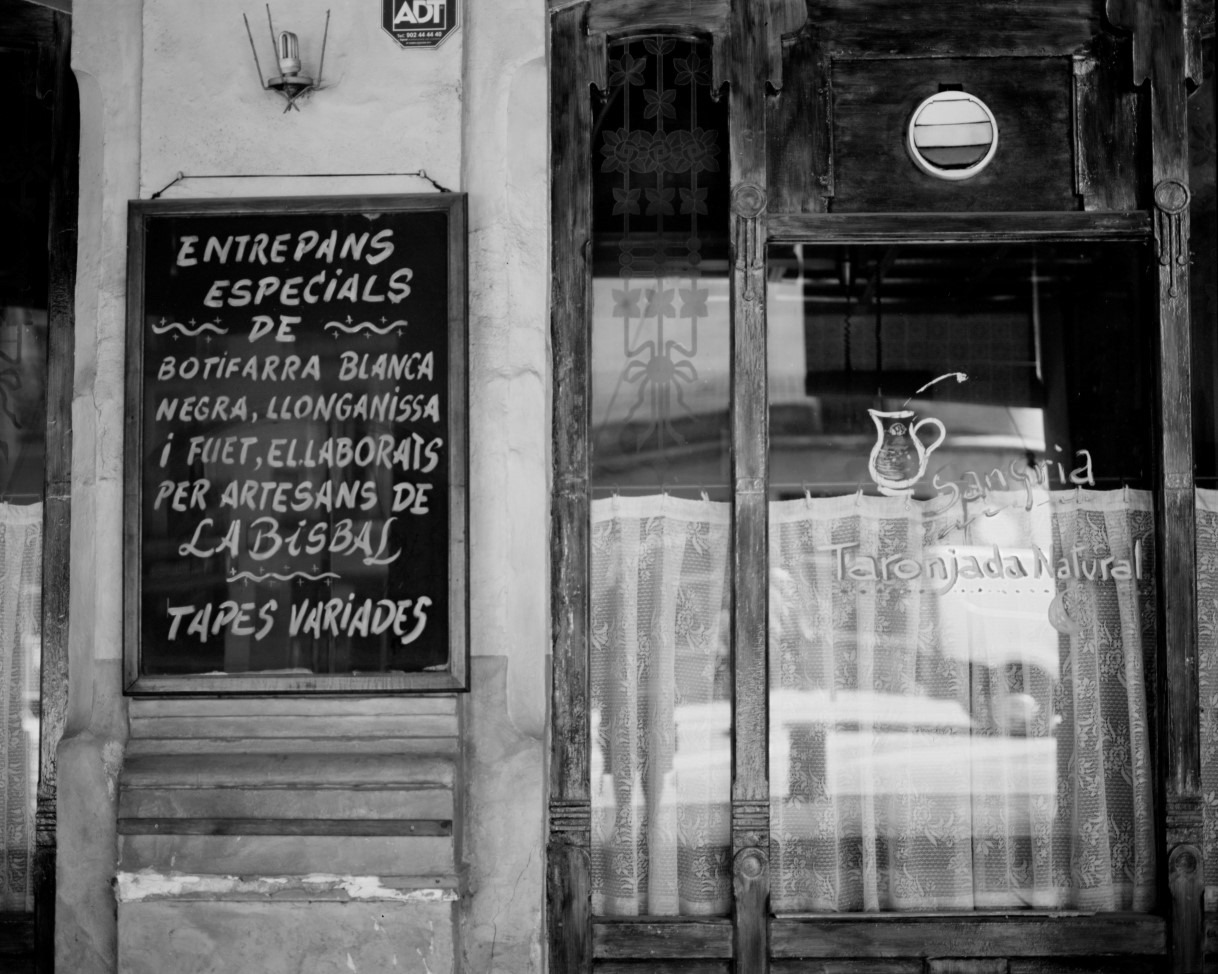 ADT
Tel: 902 44 44 40
ENTREPANS
ESPECIALS
DE
BOTIFARRA BLANCA
NEGRA, LLONGANISSA
i FUET, EL.LABORATS
PER ARTESANS DE
LA BISBAL
TAPES VARIADES
Sangria
Taronjada Natural